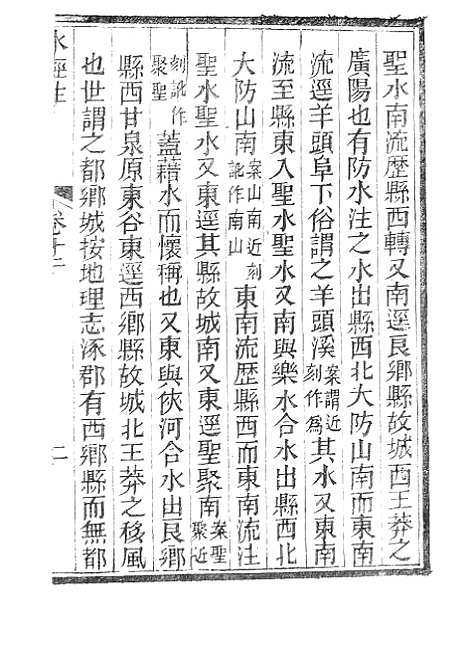 聖水南流歷縣西轉又南逕良鄉縣故城西王莽之
廣陽也有防水注之水出縣西北大防山南而東南
流逕羊頭阜下俗謂之羊頭溪案謂近刻作為其水又東南
流至縣東入聖水聖水又南與樂水合水出縣西北
大防山南案山南近刻訛作南山東南流歷縣西而東南流注
聖水聖水又東逕其縣故城南又東逕聖聚南案聖聚近
刻訛作聚聖蓋藉水而懷稱也又東與俠河合水出良鄉
縣西甘泉原東谷東逕西鄉縣故城北王莽之移風
也世謂之都鄉城按地理志涿郡有西鄉縣而無都
水經注
卷十二
二